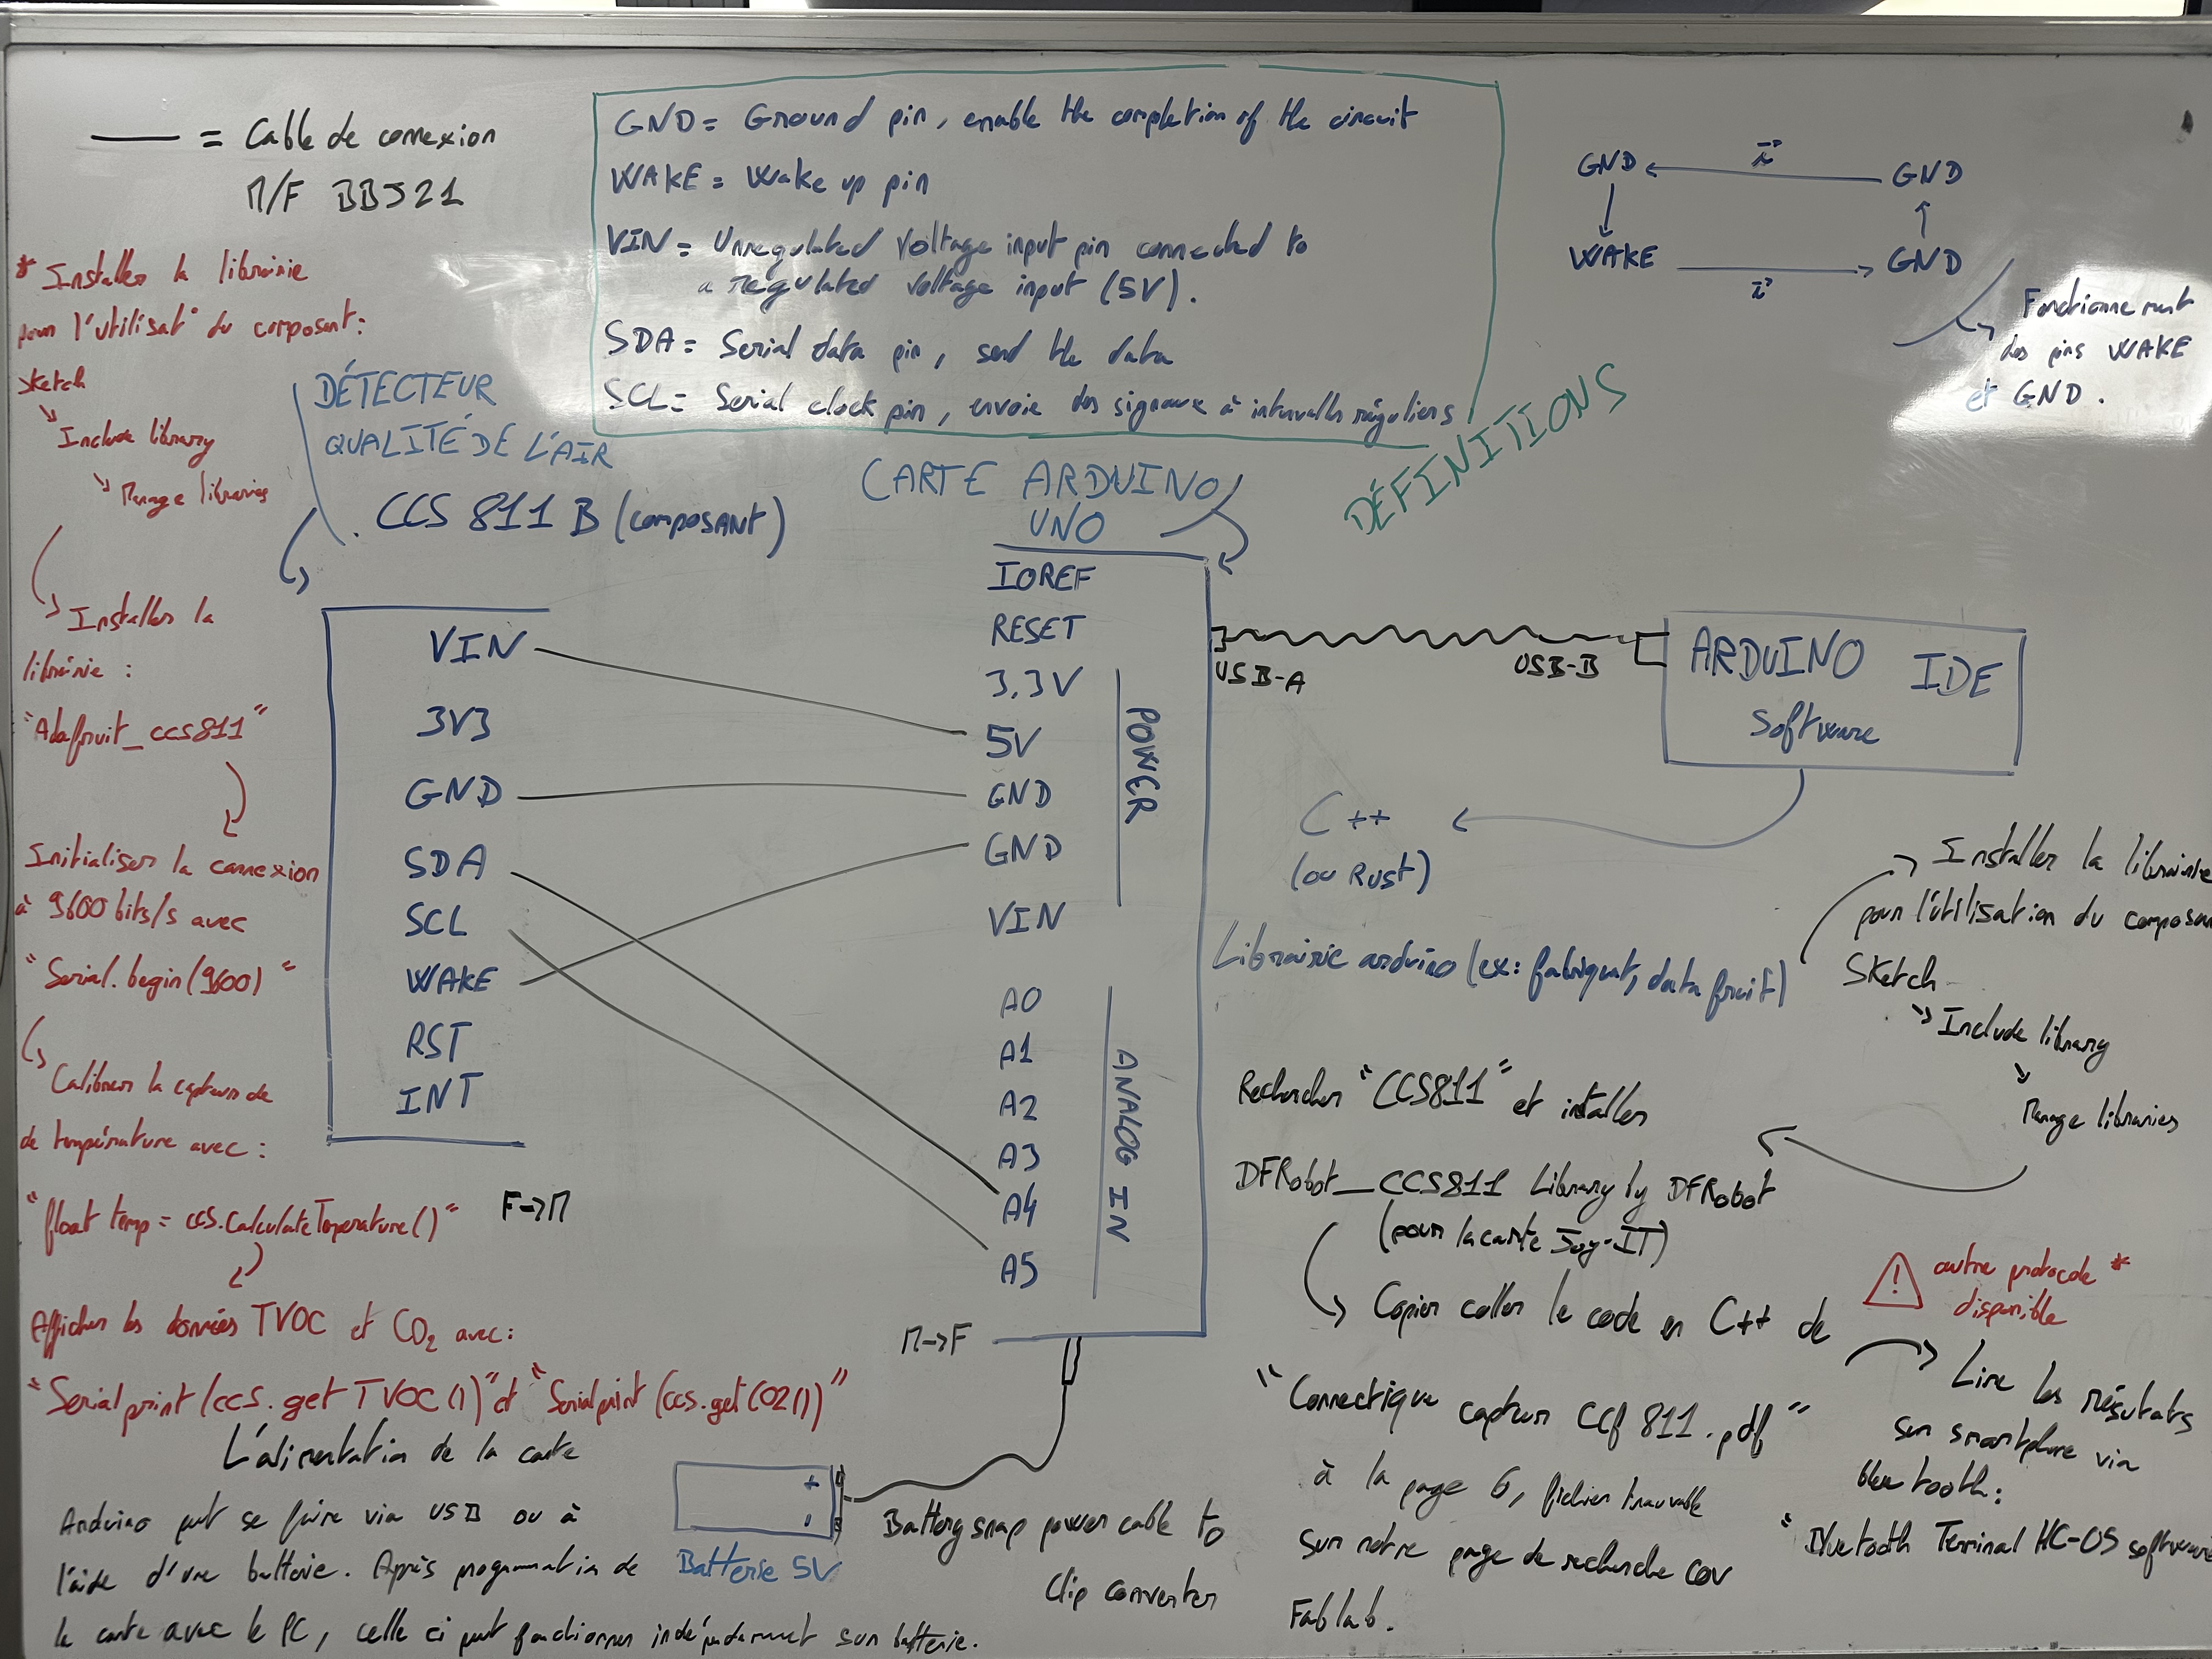 = Cable de connexion
M/F BBJ21
GND = Ground pin, enable the completion of the circuit
WAKE = Wake up pin
VIN = Unregulated voltage input pin connected to
a regulated voltage input (5V).
SDA = Serial data pin, send the data
SCL = Serial clock pin, envoie des signaux à intervalles réguliers
DÉFINITIONS
GND
GND
WAKE
GND
Fonctionnement
des pins WAKE
et GND.
* Installer la librairie
pour l'utilisat° du composant:
Sketch
Include library
Manage libraries
Installer la
librairie :
"Adafruit_CCS811"
Initialiser la connexion
à 9600 bits/s avec
"Serial.begin(9600)"
Calibrer le capteur de
de température avec :
"float temp = ccs.CalculateTemperature()"
Afficher les données TVOC et CO2 avec:
"Serialprint(ccs.getTVOC())" et "Serialprint(ccs.getCO2())"
DÉTECTEUR
QUALITÉ DE L'AIR
CCS 811 B (composANt)
VIN
3V3
GND
SDA
SCL
WAKE
RST
INT
F→M
CARTE ARDUINO
UNO
IOREF
RESET
3,3V
5V
GND
GND
VIN
POWER
A0
A1
A2
A3
A4
A5
ANALOG IN
M→F
USB-A
USB-B
ARDUINO IDE
Software
C++
(ou Rust)
Librairie arduino (ex: fabriquat, data fruit)
Installer la librairie
pour l'utilisation du
Sketch
Include library
Manage libraries
Rechercher "CCS811" et intaller
DFRobot_CCS811 Library by DFRobot
(pour la carte Joy-IT)
Copier coller le code en C++ de
"Connectique capteur CCf 811.pdf"
à la page 6, fichier trouvable
sur notre page de recherche COV
Fablab.
autre protocole *
disponible
Lire les résutats
sur smartphone via
bluetooth:
"Bluetooth Terminal HC-05 software
L'alimentation de la carte
Arduino peut se faire via USB ou à
l'aide d'une batterie. Après programmation de
la carte avec le PC, celle ci peut fonctionner indépendamment sur batterie.
+
-
Batterie 5V
Battery snap power cable to
clip converter